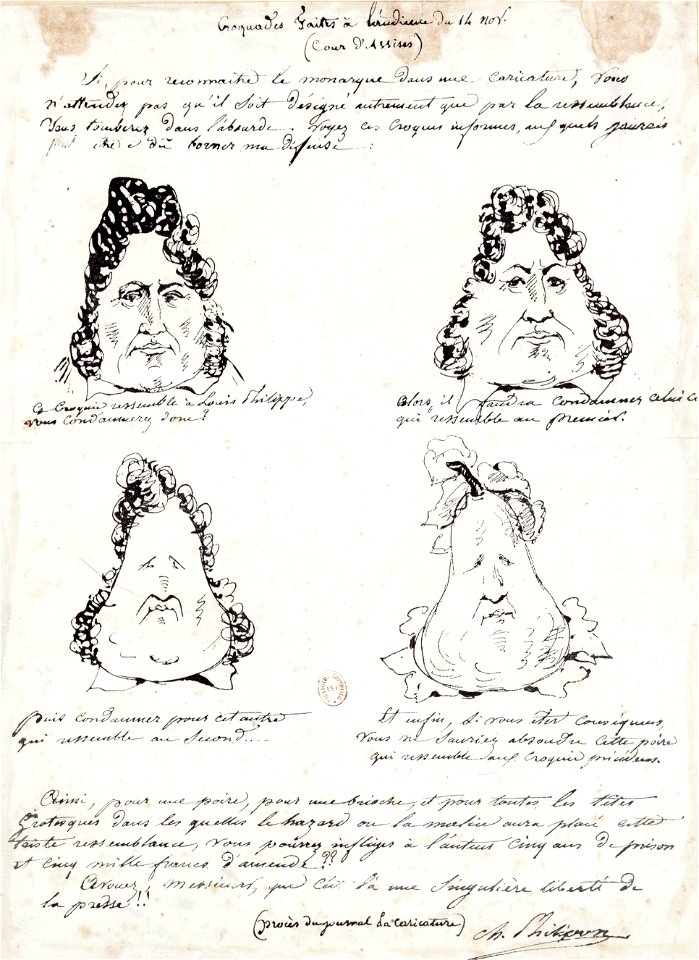 Croquades faites à l'audience du 14 Nov.
(Cour d'Assises)
Si, pour reconnaître le monarque dans une caricature, vous
n'attendez pas qu'il soit désigné autrement que par la ressemblance,
vous tomberez dans l'absurde. Voyez ces croquis informes, aux quels j'aurais
peut être dû borner ma défense :
Ce croquis ressemble à Louis Philippe,
vous condamnerez donc?
Alors il faudra condamner celui ci
qui ressemble au premier.
puis condamner pour cet autre
qui ressemble au second....
Et enfin, si vous êtes conséquens,
vous ne sauriez absoudre cette poire
qui ressemble aux croquis précédens.
Ainsi, pour une poire, pour une brioche, et pour toutes les têtes
grotesques dans les quelles le hazard ou la malice aura placé cette
triste ressemblance, vous pourrez infliger à l'auteur cinq ans de prison
et cinq mille francs d'amende??
Avouez, Messieurs, que c'est là une singulière liberté de
la presse!!
(procès du journal La Caricature)
Ch. Philipon